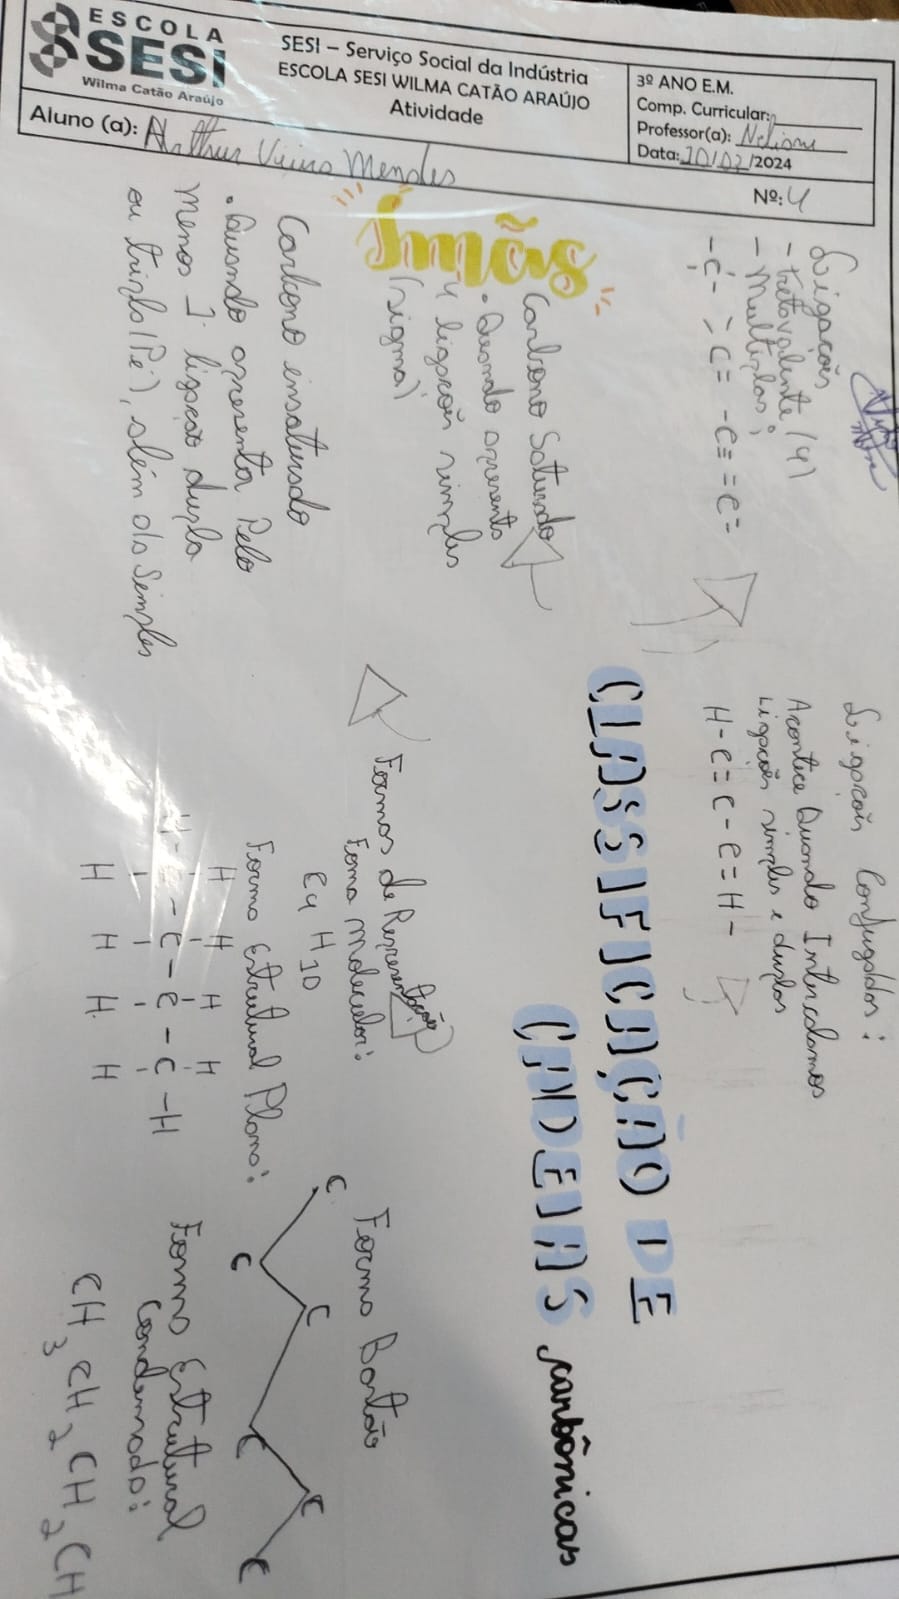 ESCOLA
SESI
Wilma Catão Araújo
SESI – Serviço Social da Indústria
ESCOLA SESI WILMA CATÃO ARAÚJO
Atividade
3º ANO E.M.
Comp. Curricular:
Professor(a):
Data: 20/02/2024
Aluno (a): Arthur Vieira Mendes
Nº: 4
Ligações
- tretavalente (4)
- Multiplas:
-C- >C= -C≡ =C=
Ligações Conjugadas:
Acontece Quando Intercalamos
Ligações simples e duplas
H-C=C-C=H-
CLASSIFICAÇÃO DE
CADEIAS carbônicas
Ímãs
Carbono Saturado
• Quando apresenta
4 ligações simples
(sigma)
Carbono insaturado
• Quando apresenta Pelo
Menos 1 ligação dupla
ou tripla (Pi), além da Simples
Formas de Representação
Forma Molecular:
C4 H10
Forma Estrutural Plana:
H H H H
H-C-C-C-C-H
H H H H
Forma Bastão
C C C C C C
Forma Estrutural
Condensada:
CH3 CH2 CH2 CH